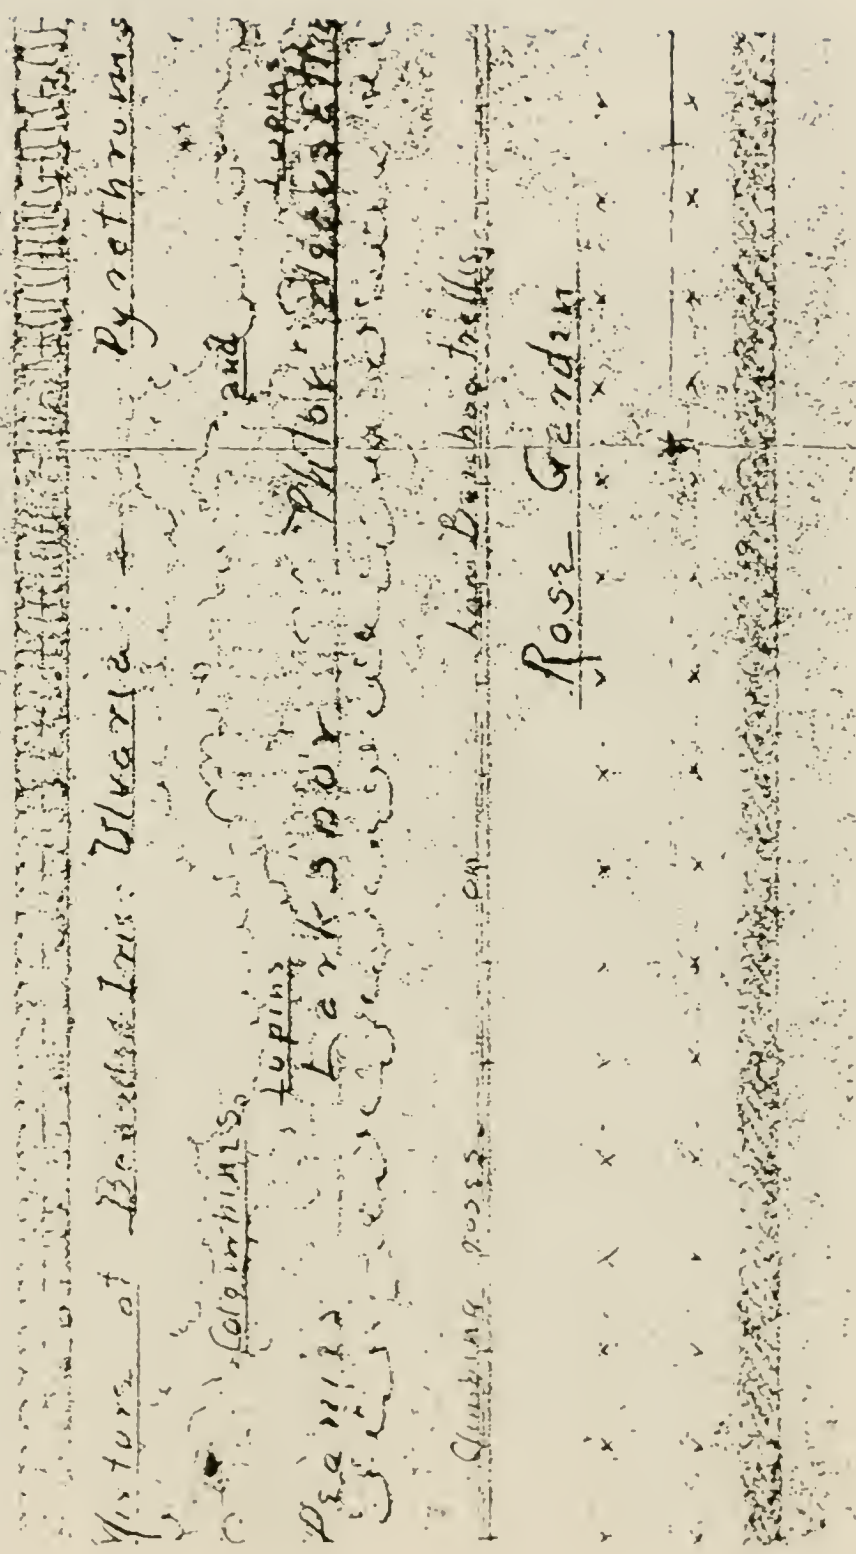 Mixture of Bearded Iris: Ulvaria: Pyrethrums
Columbines and
Lupins Lupins
Peonies Larkspur Phlox
Climbing roses on Bamboo trellis
Rose Garden